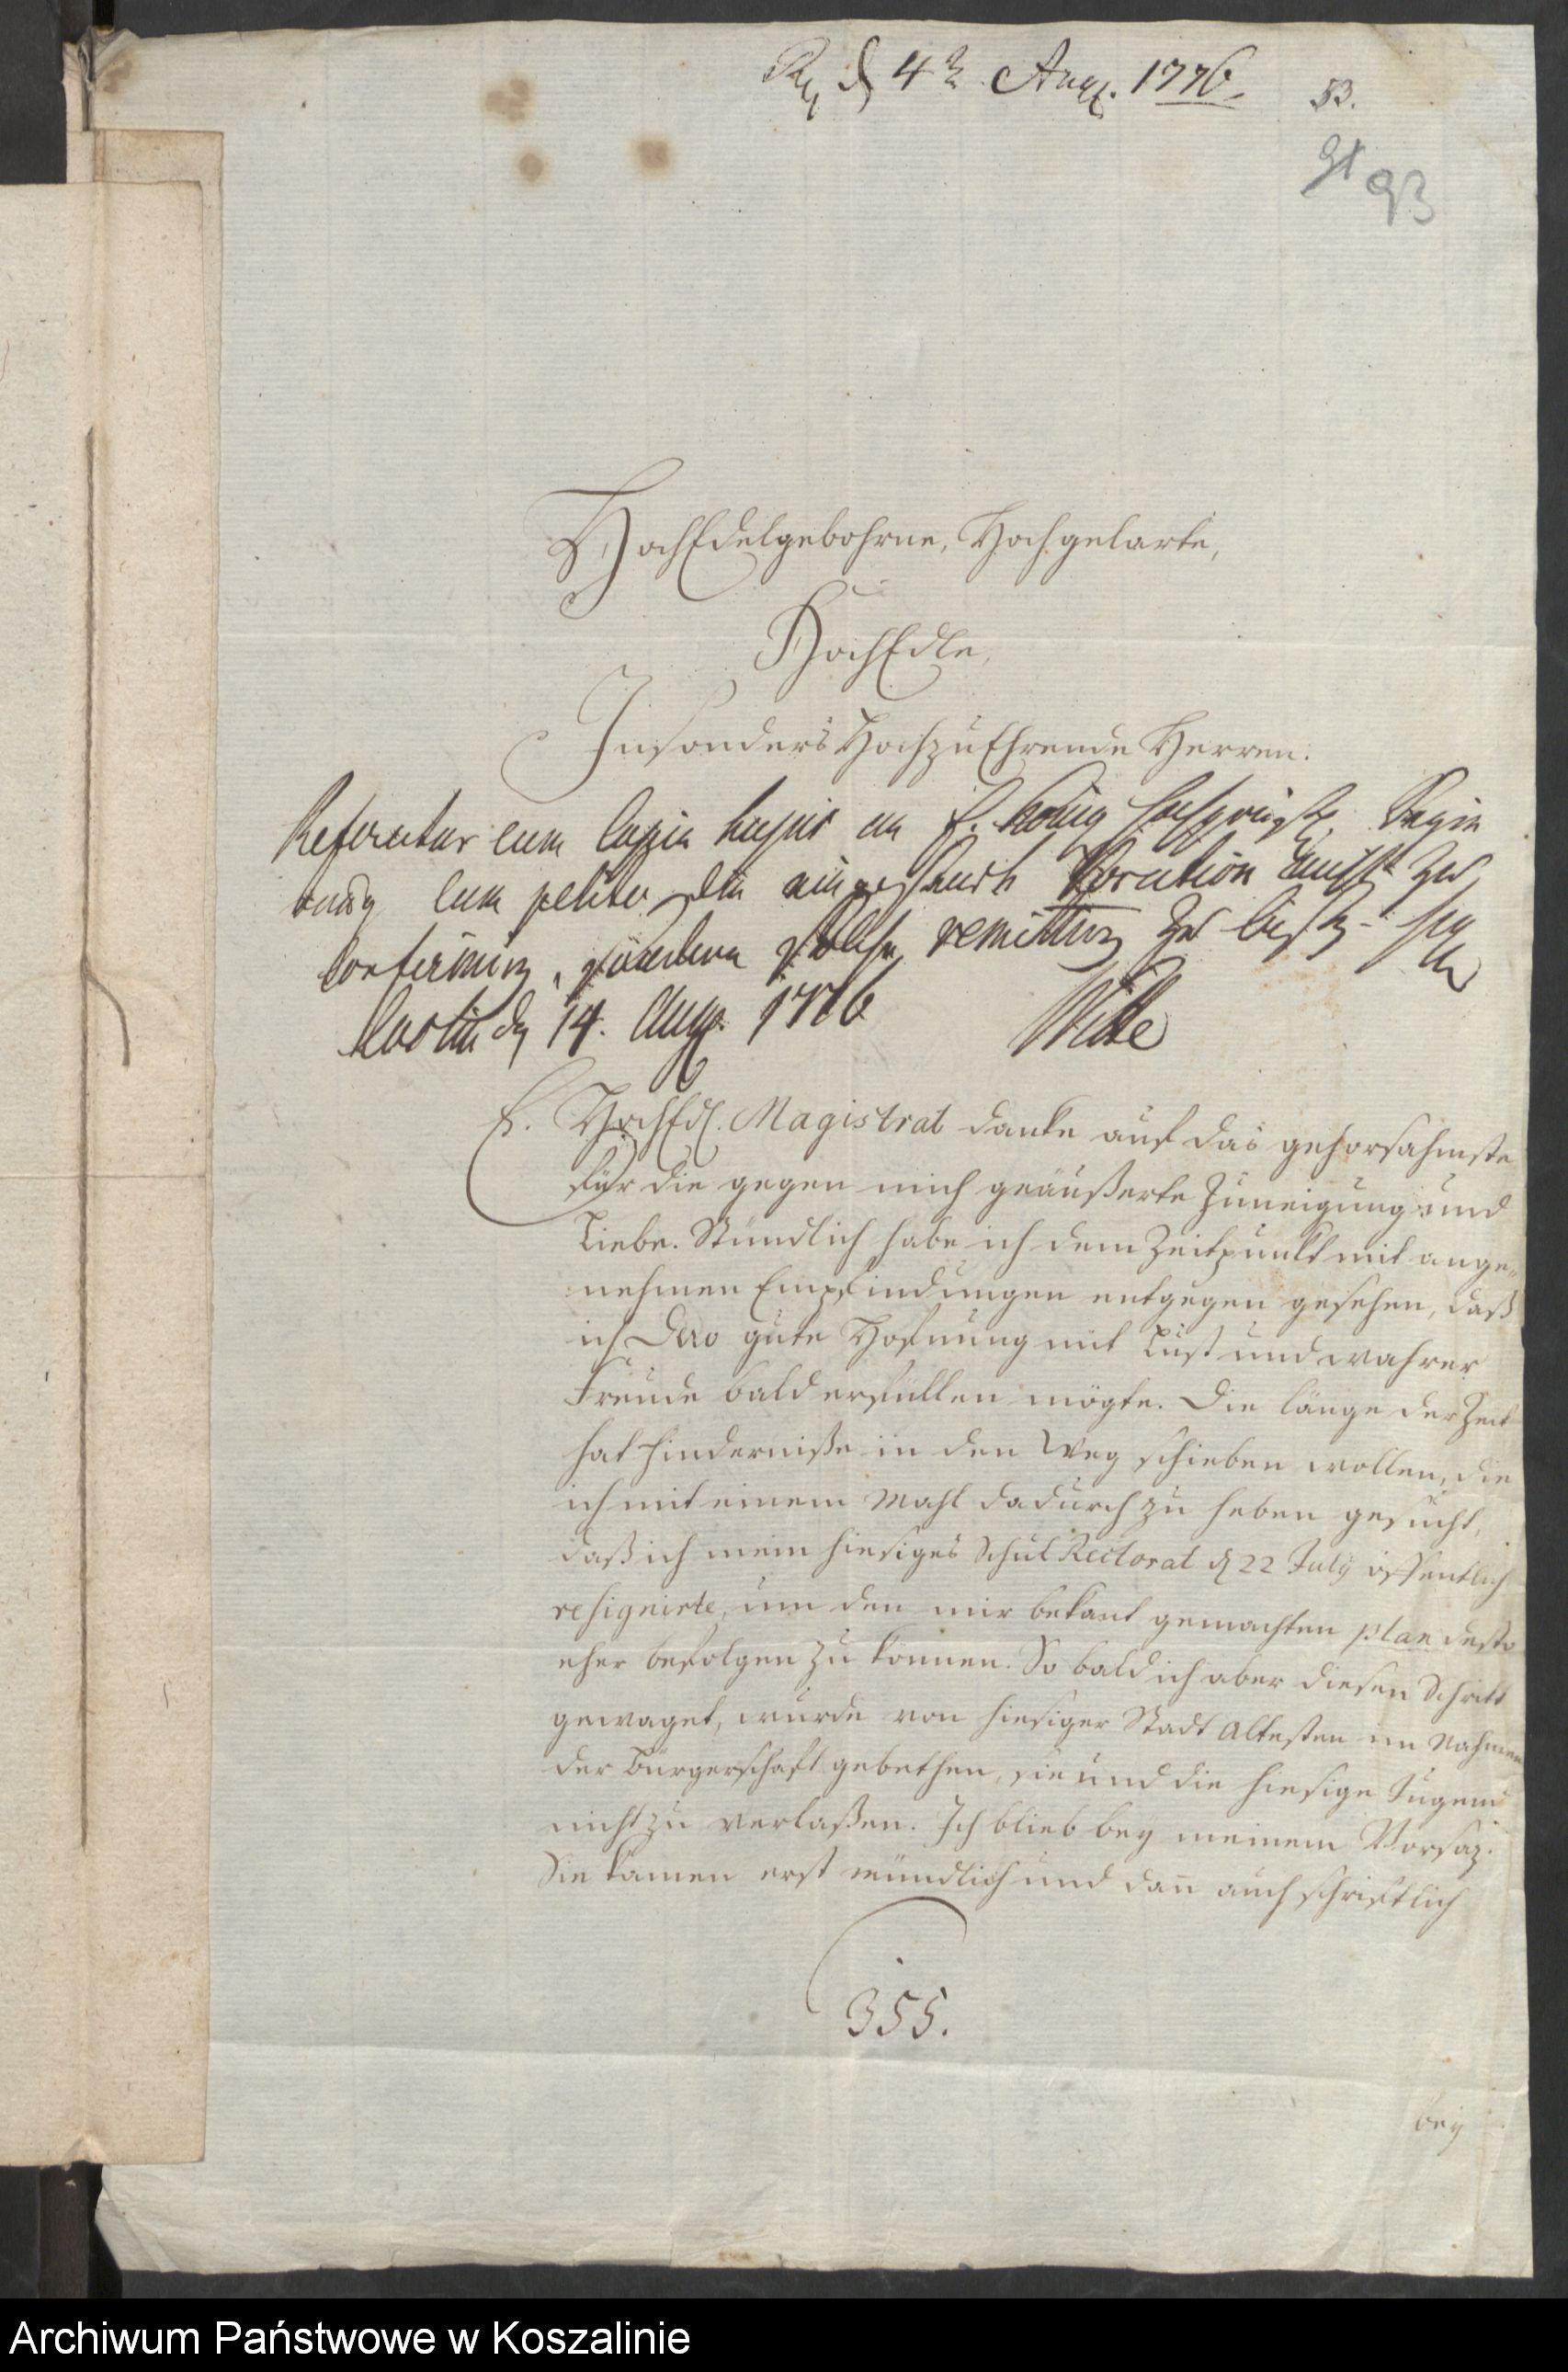 d 4 Aug. 1776.
53.
91 93
HochEdelgebohrne, Hochgelarte,
HochEdle,
Insonders HochzuEhrende Herren.
Referatur cum Copia hujus an
cum petito die Vocation zur
remittiren
Coslin d 14. Aug. 1776 Witte
E. HochEdl. Magistrat danke auf das gehorsahmste
für die gegen mich geäußerte Zuneigung und
Liebe. Stündlich habe ich dem Zeitpunkt mit ange-
nehmen Empfindungen entgegen gesehen, daß
ich Dero gute Hofnung mit Lust und wahrer
Freude bald erfüllen mögte. Die länge der Zeit
hat Hinderniße in den Weg schieben wollen, die
ich mit einem Mahl dadurch zu heben gesucht,
daß ich mein hiesiges Schul Rectorat d 22 July öffentlich
resignirte, um den mir bekant gemachten plan desto
eher befolgen zu können. So bald ich aber diesen Schritt
gewaget, wurde von hiesiger Stadt Altesten im Nahmen
der Bürgerschaft gebethen, sie und die hiesige Jugend
nicht zu verlaßen. Ich blieb bey meinem Vorsaz.
Sie kamen erst mündlich und dan auch schriftlich
355.
bey
Archiwum Państwowe w Koszalinie